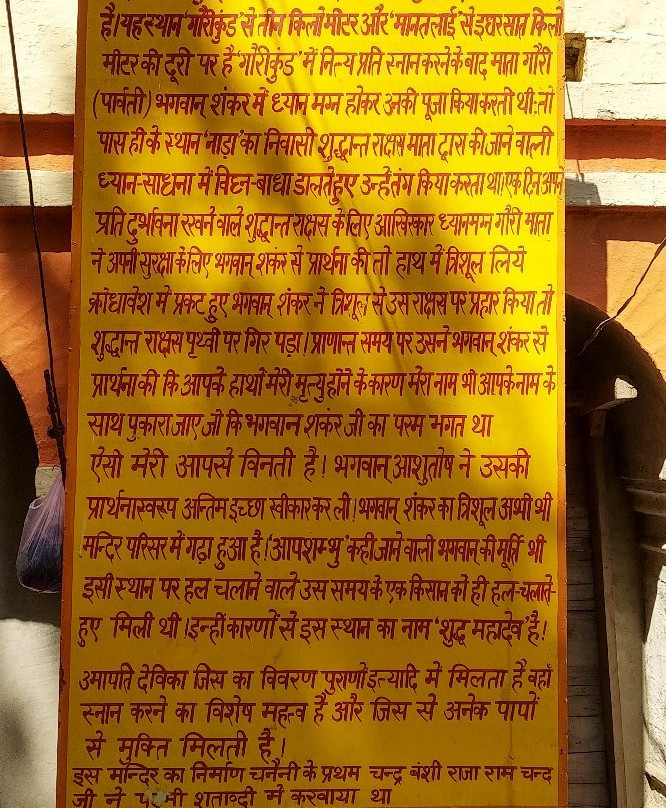 है।यह स्थान 'गौरीकुंड' से तीन किलोमीटर और 'मानतलाई' से इधर सात किलो
मीटर की दूरी पर है 'गौरीकुंड' में नित्य प्रति स्नान करने के बाद माता गौरी
(पार्वती) भगवान् शंकर में ध्यान मग्न होकर उनकी पूजा किया करती थी।तो
पास ही के स्थान 'नाड़ा' का निवासी शुद्धान्त राक्षस माता द्वारा की जाने वाली
ध्यान-साधना में विघ्न-बाधा डालते हुए उन्हें तंग किया करता था।एक दिन अपने
प्रति दुर्भावना रखने वाले शुद्धान्त राक्षस के लिए आखिरकार ध्यानमग्न गौरी माता
ने अपनी सुरक्षा के लिए भगवान् शंकर से प्रार्थना की तो हाथ में त्रिशूल लिये
क्रोधावेश में प्रकट हुए भगवान् शंकर ने त्रिशूल से उस राक्षस पर प्रहार किया तो
शुद्धान्त राक्षस पृथ्वी पर गिर पड़ा। प्राणान्त समय पर उसने भगवान् शंकर से
प्रार्थना की कि आपके हाथों मेरी मृत्यु होने के कारण मेरा नाम भी आपके नाम के
साथ पुकारा जाए जो कि भगवान शंकर जी का परम भगत था
ऐसी मेरी आपसे विनती है। भगवान् आशुतोष ने उसकी
प्रार्थनास्वरूप अन्तिम इच्छा स्वीकार कर ली।भगवान् शंकर का त्रिशूल अभी भी
मन्दिर परिसर में गढ़ा हुआ है।'आपशम्भु' कही जाने वाली भगवान की मूर्ति भी
इसी स्थान पर हल चलाने वाले उस समय के एक किसान को ही हल-चलाते-
हुए मिली थी।इन्हीं कारणों से इस स्थान का नाम 'शुद्ध महादेव' है।
उमापति देविका जिस का विवरण पुराणों इत्यादि में मिलता है वहाँ
स्नान करने का विशेष महत्व है और जिस से अनेक पापों
से मुक्ति मिलती है।
इस मन्दिर का निर्माण चनैनी के प्रथम चन्द्र बंशी राजा राम चन्द
जी ने शताब्दी में करवाया था